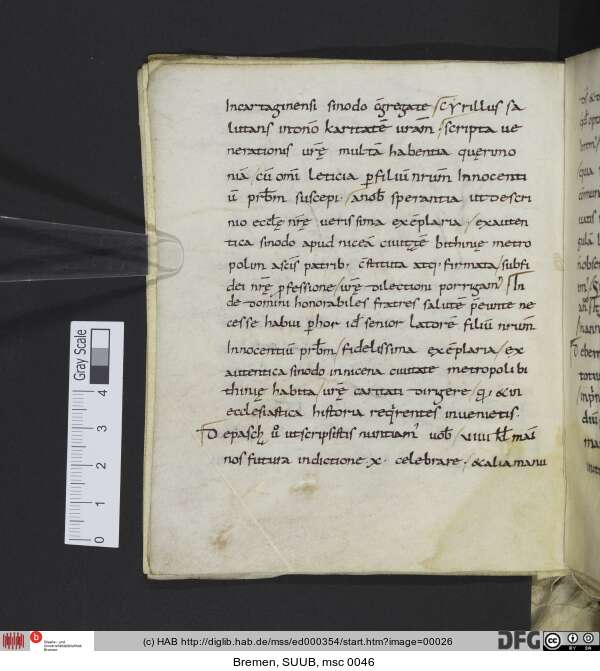 Incartaginensi sinodo c̄gregatę scyrillus sa
lutans intonō karitatē urām̄, scripta ue
nerationis urę̄ multā habentia querimo
niā, cū om̄i leticia p filiū nrūm Innocenti
ū prb̄m suscepi. anob̄ sperantia ut descri
nio ecclę̄ nrę̄ uerissima exēplaria, exauten
tica sinodo apud niceā ciuitatē bithinię metro
polim ascīs patrib. c̄stituta atq; firmata, subfi
dei nrę̄ pfessione, urę̄ dilectioni porrigam; In
de domini honorabiles fratres salutē p̄eunte ne
cesse habui phor id senior latorē filiū nrūm
Innocentiū prb̄m, fidelissima exēplaria, ex
autentica sinodo in nicena ciuitate metropoli bi
thinię habita, urę̄ caritati dirigere, q; & in
ecclēsiastica historia req̇rentes inuenietis.
D epasch̄ u͛o ut scripsistis nuntiam; uob̄, xuii kl̄ mai
nos futura indictione x. celebrare. & alia manu
Gray Scale
0 1 2 3 4
Staats- und
Universitätsbibliothek
Bremen
(c) HAB http://diglib.hab.de/mss/ed000354/start.htm?image=00026
DFG
cc BY SA
Bremen, SUUB, msc 0046